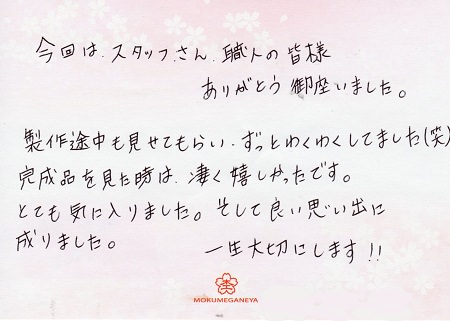 今回は、スタッフさん、職人の皆様
ありがとう御座いました。
製作途中も見せてもらい、ずっとわくわくしてました(笑)
完成品を見た時は、凄く嬉しかったです。
とても気に入りました。そして良い思い出に
成りました。 一生大切にします!!
MOKUMEGANEYA